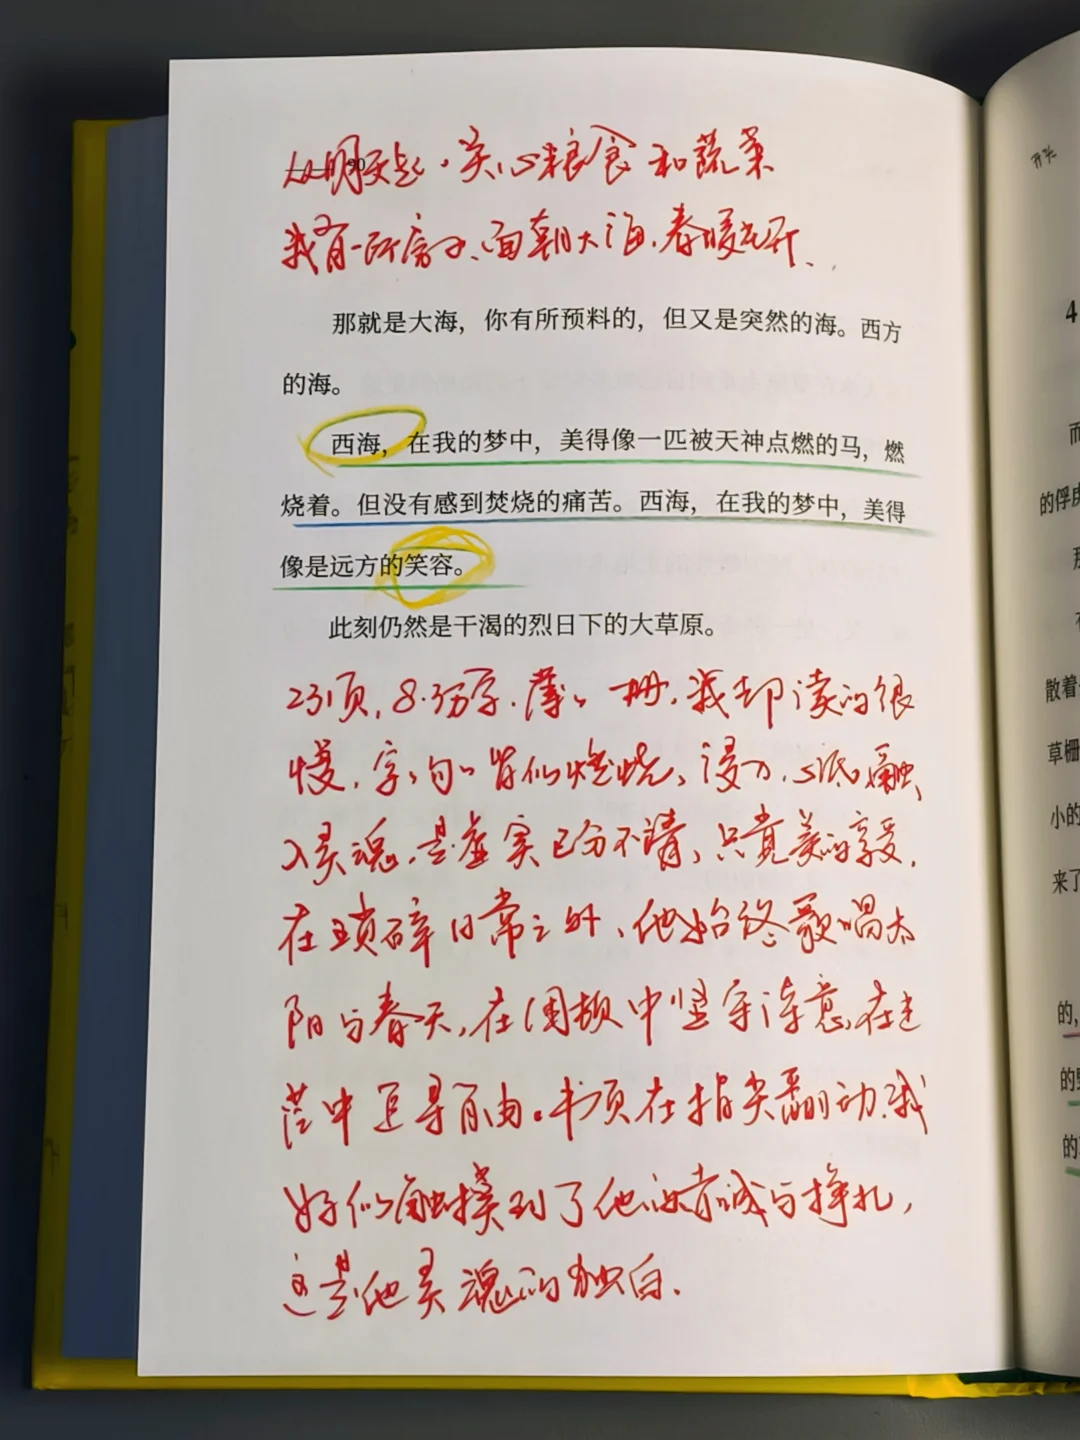 从明天起,关心粮食和蔬菜
90
我有一所房子、面朝大海,春暖花开、.
那就是大海，你有所预料的，但又是突然的海。西方
的海。
西海，在我的梦中，美得像一匹被天神点燃的马，燃
烧着。但没有感到焚烧的痛苦。西海，在我的梦中，美得
像是远方的笑容。
此刻仍然是干渴的烈日下的大草原。
231页,8.3万字.薄薄一册,我却读的很
慢,字字句句皆似燃烧、浸力、融
入灵魂,是虚实已分不清、只觉美的享受,
在琐碎日常之外、他始终歌唱太
阳与春天,在困顿中坚守诗意,在迷
茫中追寻自由。书页在指尖翻动,我
好似触摸到了他的赤诚与挣扎,
这是他灵魂的独白.
开头
4
而
的俘虏
散着
草棚
小的
来了
的,
的
的